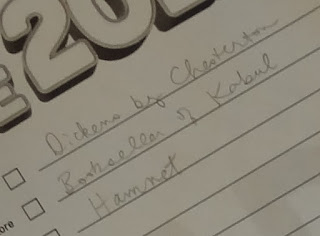 20
Dickens by Chesterton
Bookseller of Kabul
Hamnet
ore